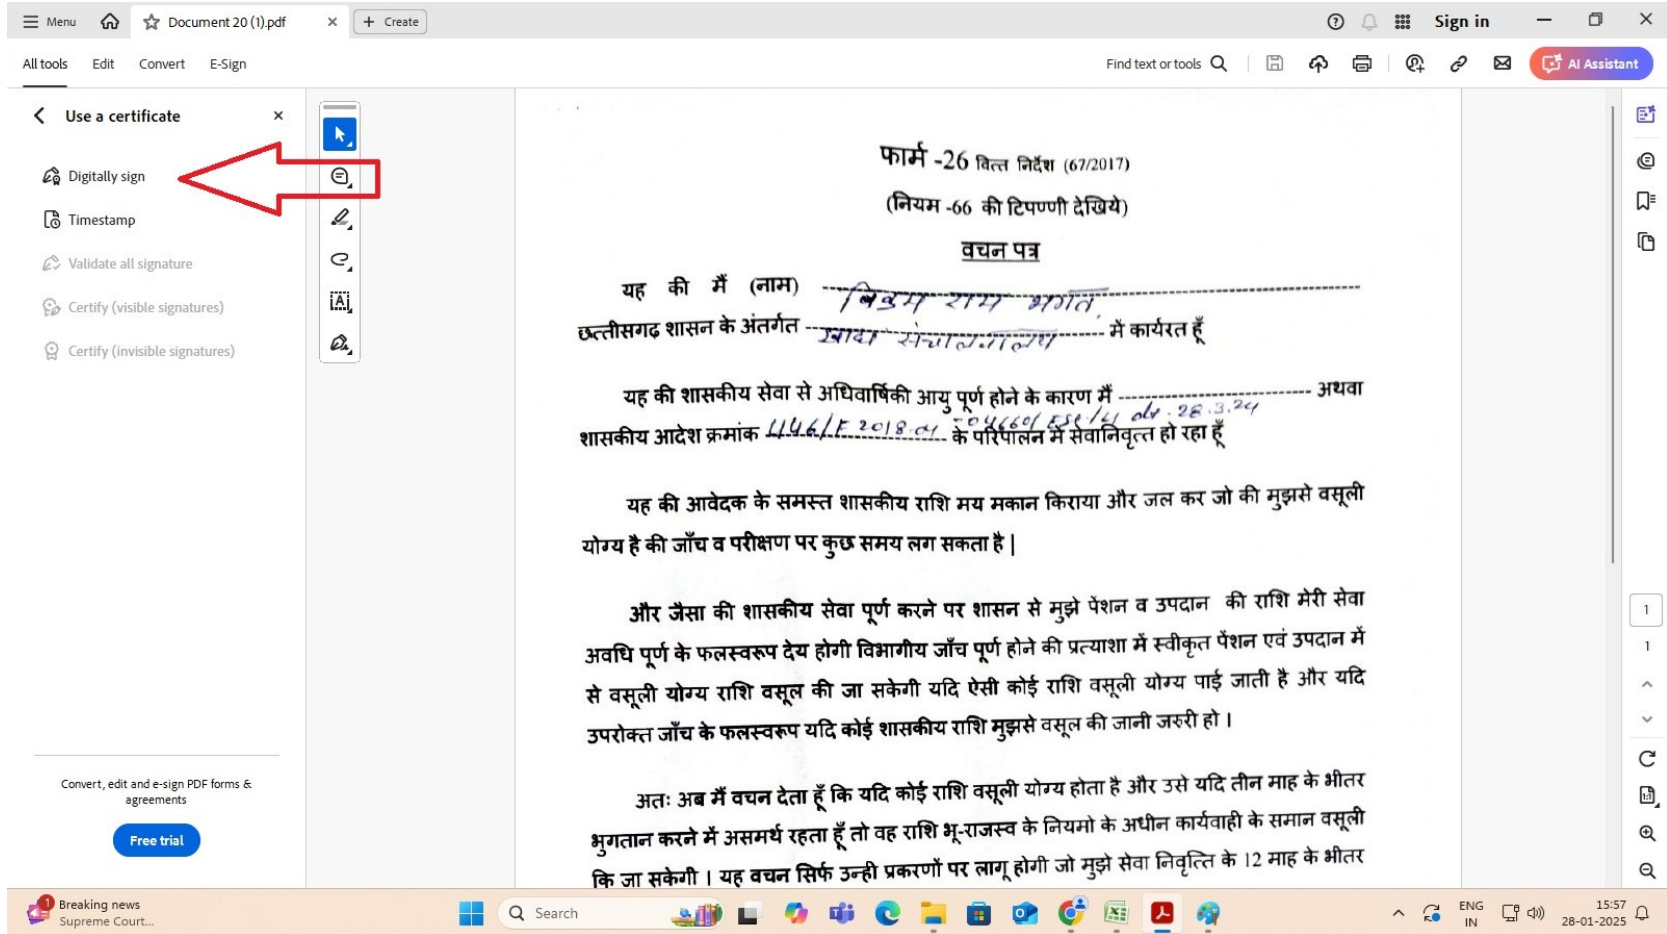 Menu
Document 20 (1).pdf
+ Create
Sign in
All tools
Edit
Convert
E-Sign
Find text or tools
AI Assistant
Use a certificate
Digitally sign
Timestamp
Validate all signature
Certify (visible signatures)
Certify (invisible signatures)
Convert, edit and e-sign PDF forms &
agreements
Free trial
फार्म -26 वित्त निर्देश (67/2017)
(नियम -66 की टिपण्णी देखिये)
वचन पत्र
यह की मैं (नाम) राम भगत
छत्तीसगढ़ शासन के अंतर्गत खाद्य संचालनालय में कार्यरत हूँ
यह की शासकीय सेवा से अधिवार्षिकी आयु पूर्ण होने के कारण मैं अथवा
शासकीय आदेश क्रमांक के परिपालन में सेवानिवृत्त हो रहा हूँ
यह की आवेदक के समस्त शासकीय राशि मय मकान किराया और जल कर जो की मुझसे वसूली
योग्य है की जाँच व परीक्षण पर कुछ समय लग सकता है |
और जैसा की शासकीय सेवा पूर्ण करने पर शासन से मुझे पेंशन व उपदान की राशि मेरी सेवा
अवधि पूर्ण के फलस्वरूप देय होगी विभागीय जाँच पूर्ण होने की प्रत्याशा में स्वीकृत पेंशन एवं उपदान में
से वसूली योग्य राशि वसूल की जा सकेगी यदि ऐसी कोई राशि वसूली योग्य पाई जाती है और यदि
उपरोक्त जाँच के फलस्वरूप यदि कोई शासकीय राशि मुझसे वसूल की जानी जरुरी हो ।
अतः अब मैं वचन देता हूँ कि यदि कोई राशि वसूली योग्य होता है और उसे यदि तीन माह के भीतर
भुगतान करने में असमर्थ रहता हूँ तो वह राशि भू-राजस्व के नियमो के अधीन कार्यवाही के समान वसूली
कि जा सकेगी । यह वचन सिर्फ उन्ही प्रकरणों पर लागू होगी जो मुझे सेवा निवृत्ति के 12 माह के भीतर
1
1
1
Breaking news
Supreme Court...
Search
ENG
IN
15:57
28-01-2025